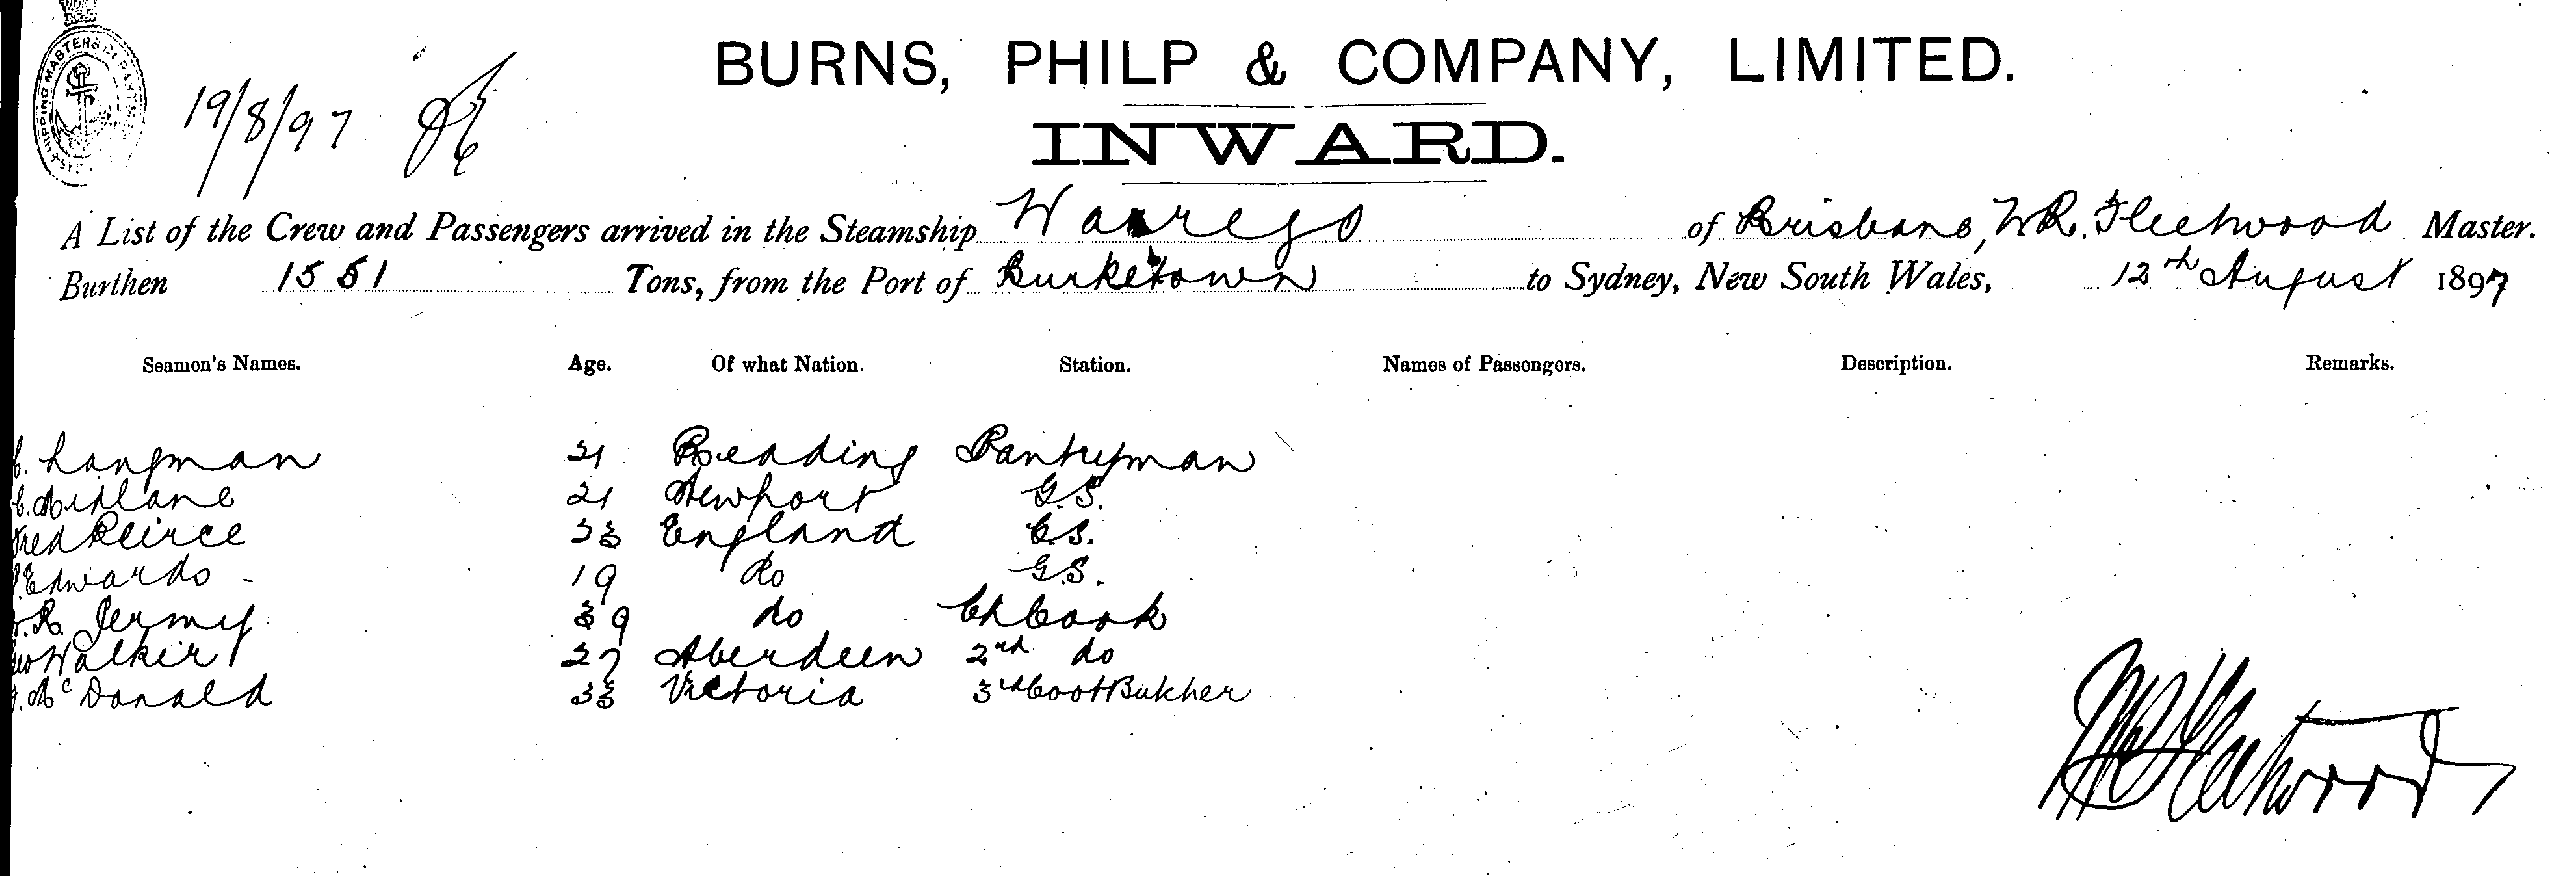 19/8/97
BURNS, PHILP & COMPANY, LIMITED.
INWARD.
A List of the Crew and Passengers arrived in the Steamship Warrego of Brisbane, W.R. Fleetwood Master.
Burthen 1551 Tons, from the Port of Burketown to Sydney, New South Wales, 12th August 1897
Seamen's Names. Age. Of what Nation. Station. Names of Passengers. Description. Remarks.
C. Langman 21 Reading Pantryman
C. Midlane 21 Newport G.S.
Fred Peirce 23 England C.S.
Edwards 19 do G.S.
R. Jermy 39 do Ch Cook
Walker 27 Aberdeen 2nd do
McDonald 33 Victoria 3rd Cook Butcher
WR Fleetwood